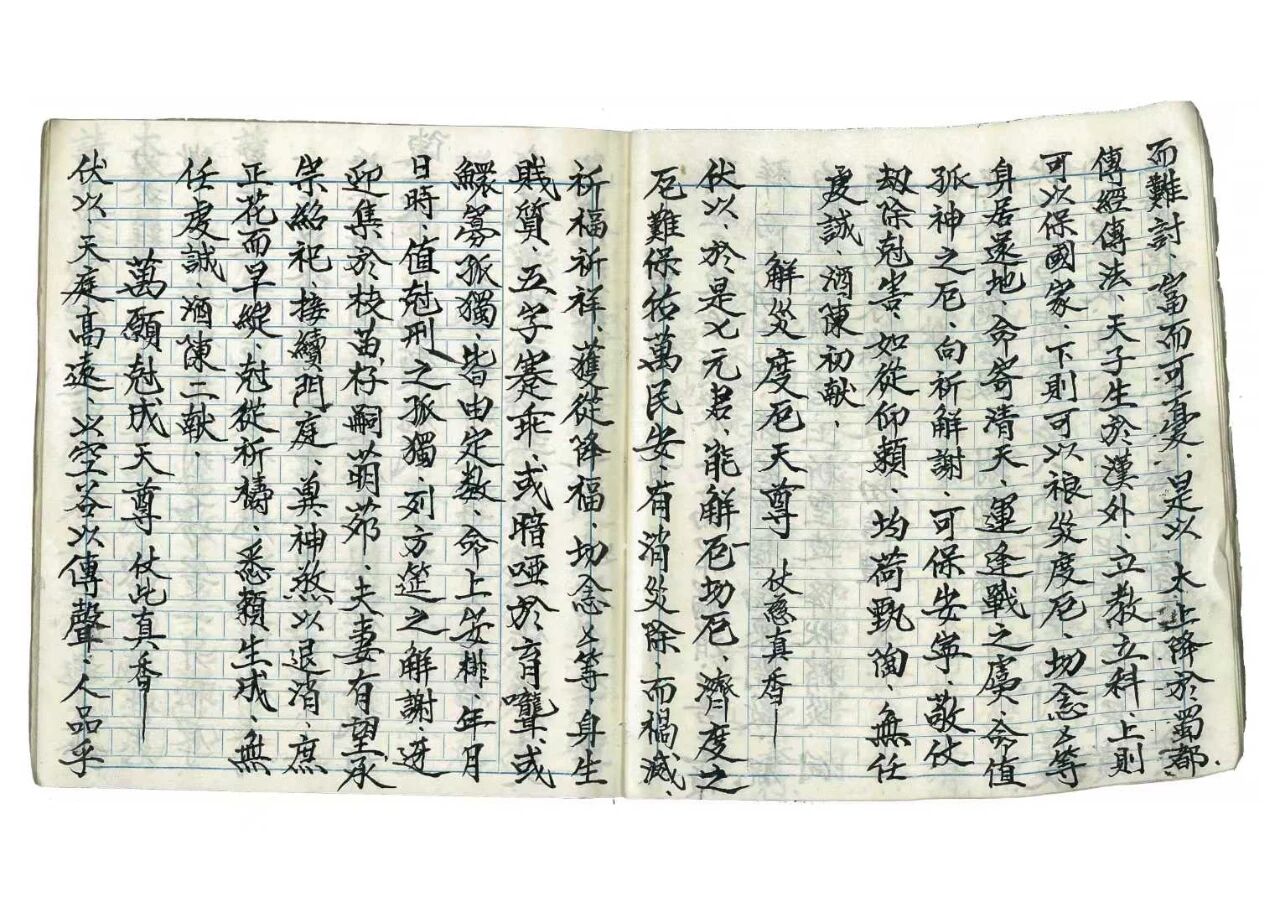 而難討、當而可憂、是以 太上降於蜀都、
傳經傳法、天子生於漢外、立教立科、上則
可以保國家、下則可以禳災度厄、切念厶等
身居遠地、命寄清天、運逢戰之虞、命值
孤神之厄、向祈解謝、可保安寧、敬仗
劫除尅害、如從仰賴、均荷甄陶、無任
虔誠、酒陳初献、
解災度厄天尊 仗慈真香
伏以、於是七元君、能解厄切厄、濟度之
厄難保佑萬民安、有消災除、而禍滅、
祈福祈祥、獲從降福、切念厶等、身生
賎質、五字蹇乖、或暗啞於盲聾、或
鰥寡孤獨、皆由定数、命上安排、年月
日時、值尅刑之孤獨、列方筵之解謝、迓
迎集於枝苗、好嗣萌茆、夫妻有望、承
宗紹祀、接續門庭、冀神煞以退消、庶
正花而早綻、尅從祈禱、悉賴生成、無
任虔誠、酒陳二献、
萬願尅成天尊 仗此真香
伏以、天庭髙遠、以空谷以傳聲、人品乎